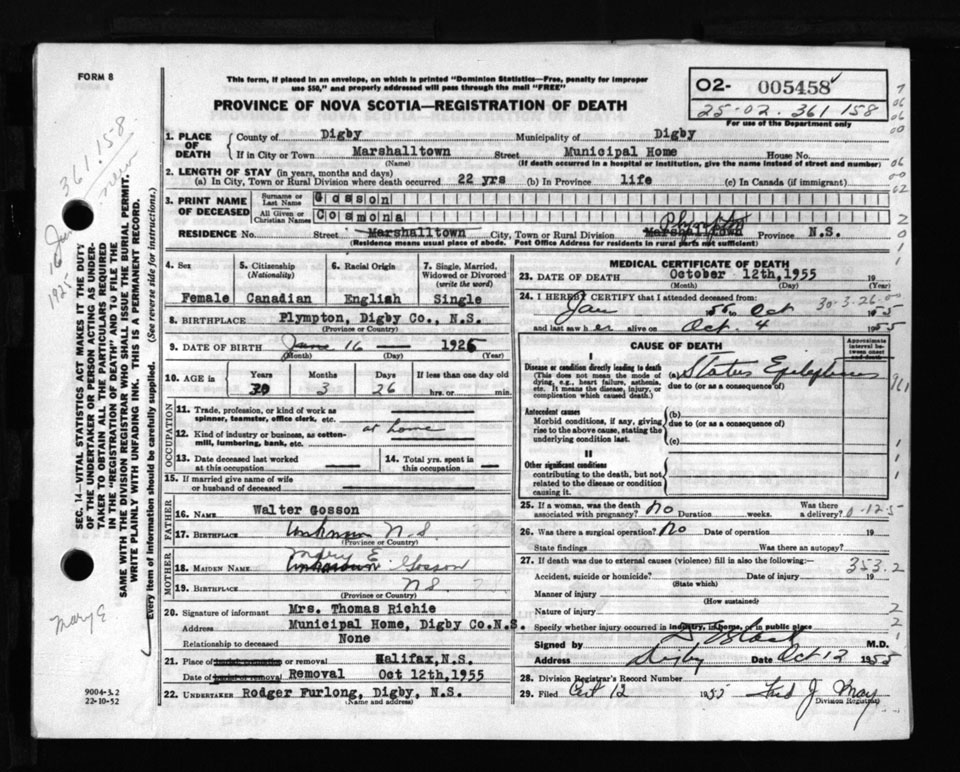 FORM 8
This form, if placed in an envelope, on which is printed "Dominion Statistics—Free, penalty for improper
use $50," and properly addressed will pass through the mail "FREE"
PROVINCE OF NOVA SCOTIA—REGISTRATION OF DEATH
02- 005458
25-02. 361.158
For use of the Department only
1. PLACE OF DEATH County of Digby Municipality of Digby
If in City or Town Marshalltown Street Municipal Home House No.
(Name) (If death occurred in a hospital or institution, give the name instead of street and number)
2. LENGTH OF STAY (in years, months and days)
(a) In City, Town or Rural Division where death occurred 22 yrs (b) In Province life (c) In Canada (if immigrant)
3. PRINT NAME OF DECEASED Surname or Last Name Gosson
All Given or Christian Names Cosmona
RESIDENCE No. Street Marshalltown City, Town or Rural Division Marshalltown Plympton Province N.S.
(Residence means usual place of abode. Post Office Address for residents in rural parts not sufficient)
4. Sex 5. Citizenship (Nationality) 6. Racial Origin 7. Single, Married, Widowed or Divorced (write the word)
Female Canadian English Single
8. BIRTHPLACE Plympton, Digby Co., N.S.
(Province or Country)
9. DATE OF BIRTH June 16 1925
(Month) (Day) (Year)
10. AGE in Years Months Days If less than one day old
30 3 26 hrs. or min.
OCCUPATION
11. Trade, profession, or kind of work as
spinner, teamster, office clerk, etc.
12. Kind of industry or business, as cotten- at home
mill, lumbering, bank, etc.
13. Date deceased last worked at this occupation 14. Total yrs. spent in this occupation
15. If married give name of wife
or husband of deceased
FATHER
16. NAME Walter Gosson
17. BIRTHPLACE Unknown N.S.
(Province or Country)
MOTHER
Mary E
18. MAIDEN NAME Unknown Gosson
19. BIRTHPLACE N.S. ?
(Province or Country)
20. Signature of informant Mrs. Thomas Richie
Address Municipal Home, Digby Co.N.S.
Relationship to deceased None
21. Place of burial cremation or removal Halifax,N.S.
Date of burial or removal Removal Oct 12th,1955
22. UNDERTAKER Rodger Furlong, Digby, N.S.
(Name and address)
MEDICAL CERTIFICATE OF DEATH
23. DATE OF DEATH October 12th,1955 19
(Month) (Day) (Year)
24. I HEREBY CERTIFY that I attended deceased from: 30-3-26-00
Jan 55 to Oct 1955
and last saw h er alive on Oct. 4 1955
CAUSE OF DEATH Approximate interval between onset and death
I
Disease or condition directly leading to death (a) Status Epilepticus
(This does not mean the mode of dying, e.g., heart failure, asthenia, etc. It means the disease, injury, or complication which caused death.) due to (or as a consequence of)
Antecedent causes (b)
Morbid conditions, if any, giving rise to the above cause, stating the underlying condition last. due to (or as a consequence of)
(c)
II
Other significant conditions
contributing to the death, but not related to the disease or condition causing it.
25. If a woman, was the death associated with pregnancy? No Duration weeks. Was there a delivery? 0-125
26. Was there a surgical operation? No Date of operation 19
State findings Was there an autopsy?
27. If death was due to external causes (violence) fill in also the following: 353.2
Accident, suicide or homicide? Date of injury 19
(State which)
Manner of injury
(How sustained)
Nature of injury
Specify whether injury occurred in industry, in home, or in public place
Signed M.D.
Address Digby Date Oct 12 1955
28. Division Registrar's Record Number
29. Filed Oct 12 1955 Fred J. May
Division Registrar
SEC. 14—VITAL STATISTICS ACT MAKES IT THE DUTY
OF THE UNDERTAKER OR PERSON ACTING AS UNDER-
TAKER TO OBTAIN ALL THE PARTICULARS REQUIRED
IN THE "REGISTRATION OF DEATH" AND TO FILE THE
SAME WITH THE DIVISION REGISTRAR WHO SHALL ISSUE THE BURIAL PERMIT.
WRITE PLAINLY WITH UNFADING INK. THIS IS A PERMANENT RECORD.
Every item of information should be carefully supplied. (See reverse side for instructions.)
361.158
16 June
1925
Mary E
9004-3.2
22-10-52